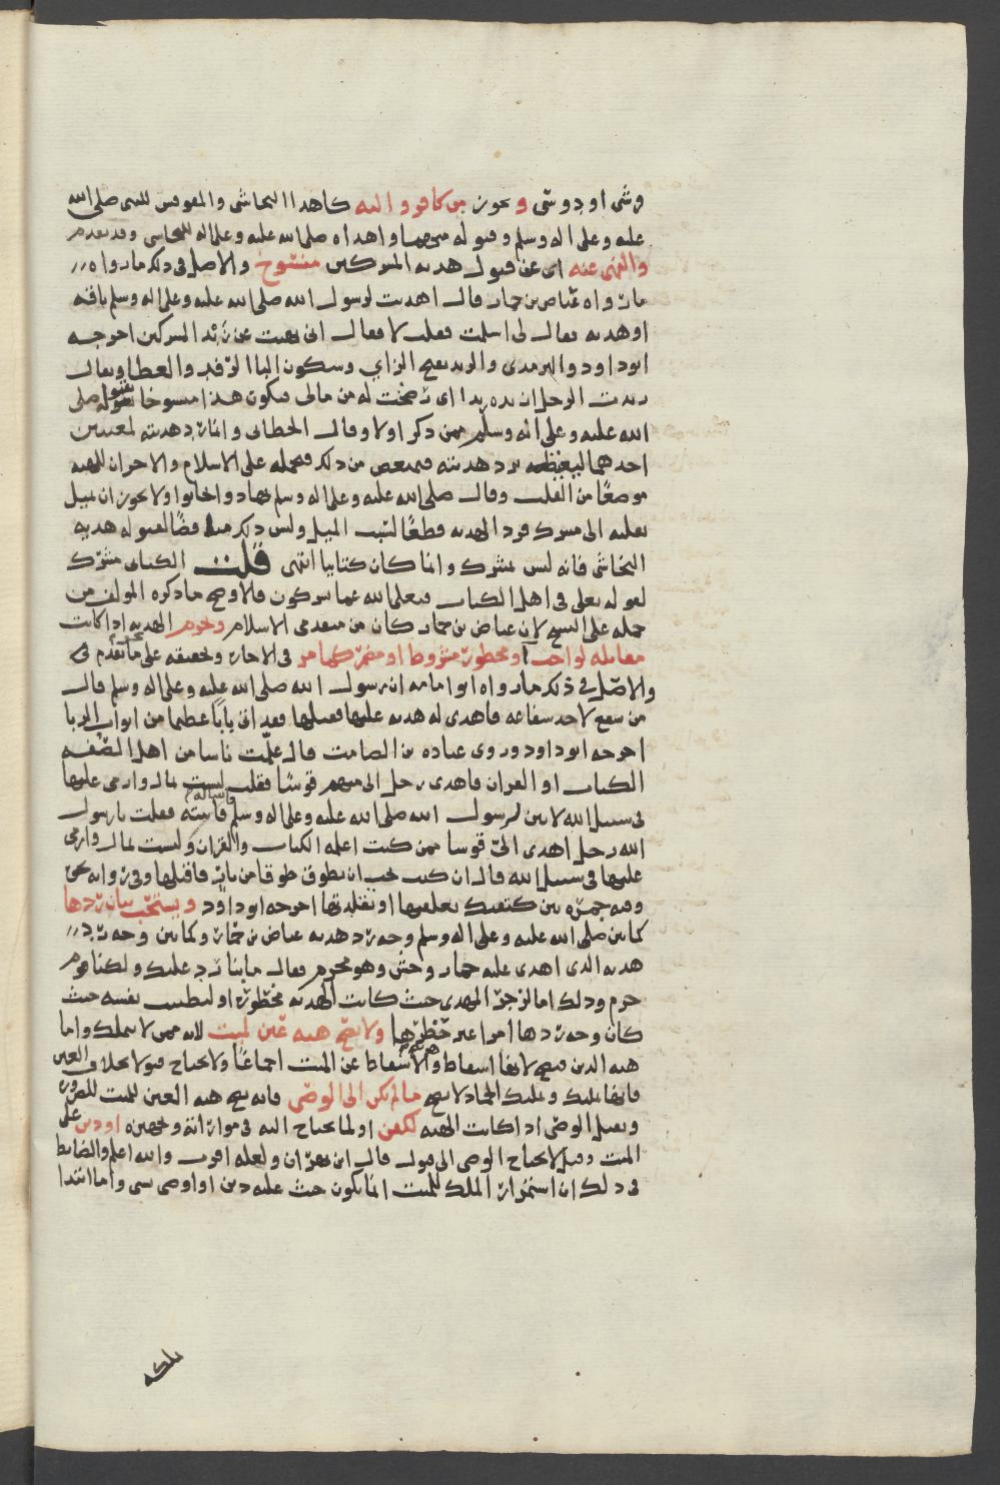 وشى او دوشى و يجوز من كافر و اليه كاهدا النجاشى والمقوقس للنبى صلى الله
عليه وعلى اله وسلم وقبوله منهما واهداه صلى الله عليه وعلى اله للنجاشى وقد تقدم
والنهى عنه اى عن قبول هديه المشركين منسوخ والاصل فى ذلك ما رواه
ما رواه عياض بن حمار قال اهديت لرسول الله صلى الله عليه وعلى اله وسلم ناقه
او هديه فقال لى اسلمت فقلت لا فقال انى نهيت عن زبد المشركين اخرجه
ابو داود والترمذى والزبد بفتح الزاي وسكون البا الرفد والعطا ويقال
زبدت الرجل ازبده زبدا اى رضخت له من مالى فيكون هذا منسوخا بقبوله صلى
الله عليه وعلى اله وسلم ممن ذكر اولا وقال الخطابى وانما رد هديته لمعنيين
احدهما ليغيظه برد هديته فيمتعض من ذلك فيحمله على الاسلام والاخر ان للهديه
موضعًا من القلب وقال صلى الله عليه وعلى اله وسلم تهادوا تحابوا ولا يجوز ان يميل
بقلبه الى مشرك فرد الهديه قطعًا لسبب الميل وليس ذلك مناقضًا لقبوله هديه
النجاشى فانه ليس بمشرك وانما كان كتابيا انتهى قلت الكتابى مشرك
لقوله تعلى فى اهل الكتاب فتعلى الله عما يشركون فالاوجه ما ذكره المولف من
حمله على النسخ لان عياض بن حمار كان من متقدمى الاسلام وتحرم الهديه اذا كانت
مقابله لواجب او محظور مشروط او مضمر كما مر فى الاجاره وتحقيقه على ما تقدم فى
والاصل فى ذلك ما رواه ابو امامه ان رسول الله صلى الله عليه وعلى اله وسلم قال
من شفع لاحد شفاعه فاهدى له هديه عليها فقبلها فقد اتى بابًا عظيما من ابواب الربا
اخرجه ابو داود وروى عباده بن الصامت قال علّمت ناسا من اهل الصفه
الكتاب او القران فاهدى رجل الى منهم قوسًا فقلت ليست بمال وارمى عليها
فى سبيل الله لاتين لرسول الله صلى الله عليه وعلى اله وسلم فاسالنه فاتيته فقلت يا رسول
الله رجل اهدى الىّ قوسا ممن كنت اعلمه الكتاب والقران وليست بمال وارمى
عليها فى سبيل الله قال ان كنت تحب ان تطوق طوقا من نار فاقبلها وفى روايه
جمره بين كتفيك تعلقتها او تقلدتها اخرجه ابو داود ويستحب بيان ردها
كما بين صلى الله عليه وعلى اله وسلم وجه رد هديه عياض بن حمار وكما بين وجه رد
هديه الذى اهدى عليه حمار وحش وهو محرم فقال ما بنا رد عليك ولكنا قوم
حرم وذلك اما لزجر المهدى حيث كانت الهديه محظوره او لتطييب نفسه حيث
كان وجه ردها امرا غير حظرها ولا تصح هبه عين لميت لانه ممن لا يملك واما
هبه الدين فتصح لانها اسقاط والاسقاط عن الميت اجماعًا ولا يحتاج قبولا بخلاف العين
فانها تمليك وتمليك الجماد لا يصح ما لم تكن الى الوصى فانه يصح هبه العين للميت للضروره
ويقبل الوصى اذا كانت الهبه لكفن او لما يحتاج اليه فى مواراته وتجهيزه او دين على
الميت وقيل لا يحتاج الوصى الى قبول قال ابن بهران ولعله اقرب والله اعلم والضابط
فى ذلك ان استمرار الملك للميت انما يكون حيث عليه دين او اوصى بشى واما ابتدا
ملكه